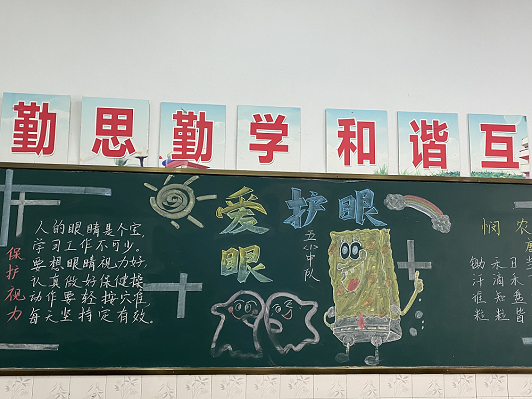 勤思勤学和谐互
爱护眼
眼
五心中队
保护视力
人的眼睛是个宝,
学习工作不可少。
要想眼睛视力好,
认真做好保健操
动作要轻按穴准,
每天坚持定有效。
悯农
锄禾日当
汗滴禾
谁知盘
粒粒皆